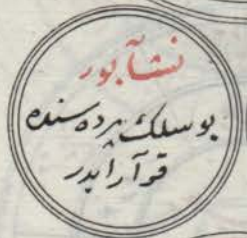 نشآبور
بوسلك پرده سنده
قرار ايدر